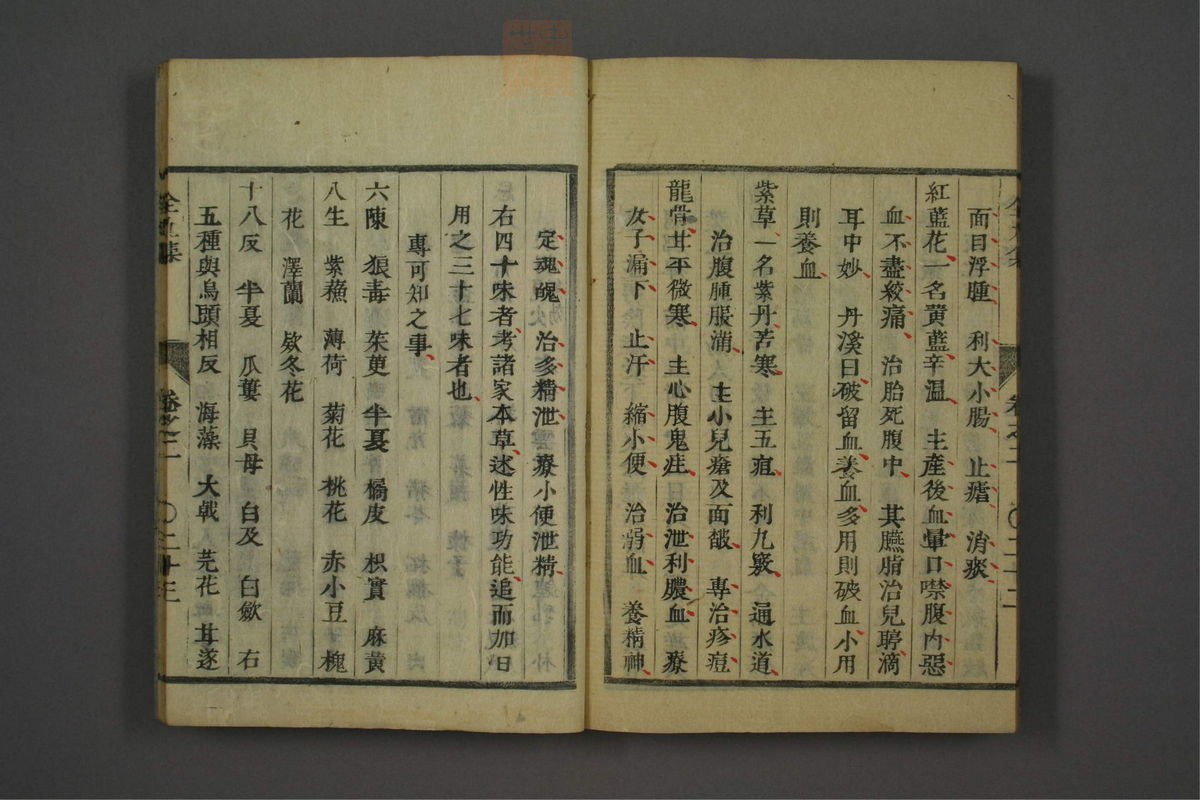 面目浮腫 利大小腸 止瘧 消痰
紅藍花一名黄藍辛温 主產後血暈口噤腹内惡
血不盡絞痛 治胎死腹中 其臙脂治兒聤滴
耳中妙 丹溪曰破留血養血多用則破血小用
則養血
紫草一名紫丹苦寒 主五疸 利九竅 通水道
治腹腫脹滿 主小兒瘡及面皶 專治疹痘
龍骨甘平微寒 主心腹鬼疰 治泄利膿血 療
女子漏下 止汗 縮小便 治溺血 養精神
定魂魄 治多精泄 療小便泄精
右四十味者考諸家本草述性味功能追而加日
用之三十七味者也
專可知之事
六陳 狼毒 茱萸 半夏 橘皮 枳實 麻黄
八生 紫蘓 薄荷 菊花 桃花 赤小豆 槐
花 澤蘭 欵冬花
十八反 半夏 瓜蔞 貝母 白及 白斂 右
五種與烏頭相反 海藻 大戟 芫花 甘遂
卷之二